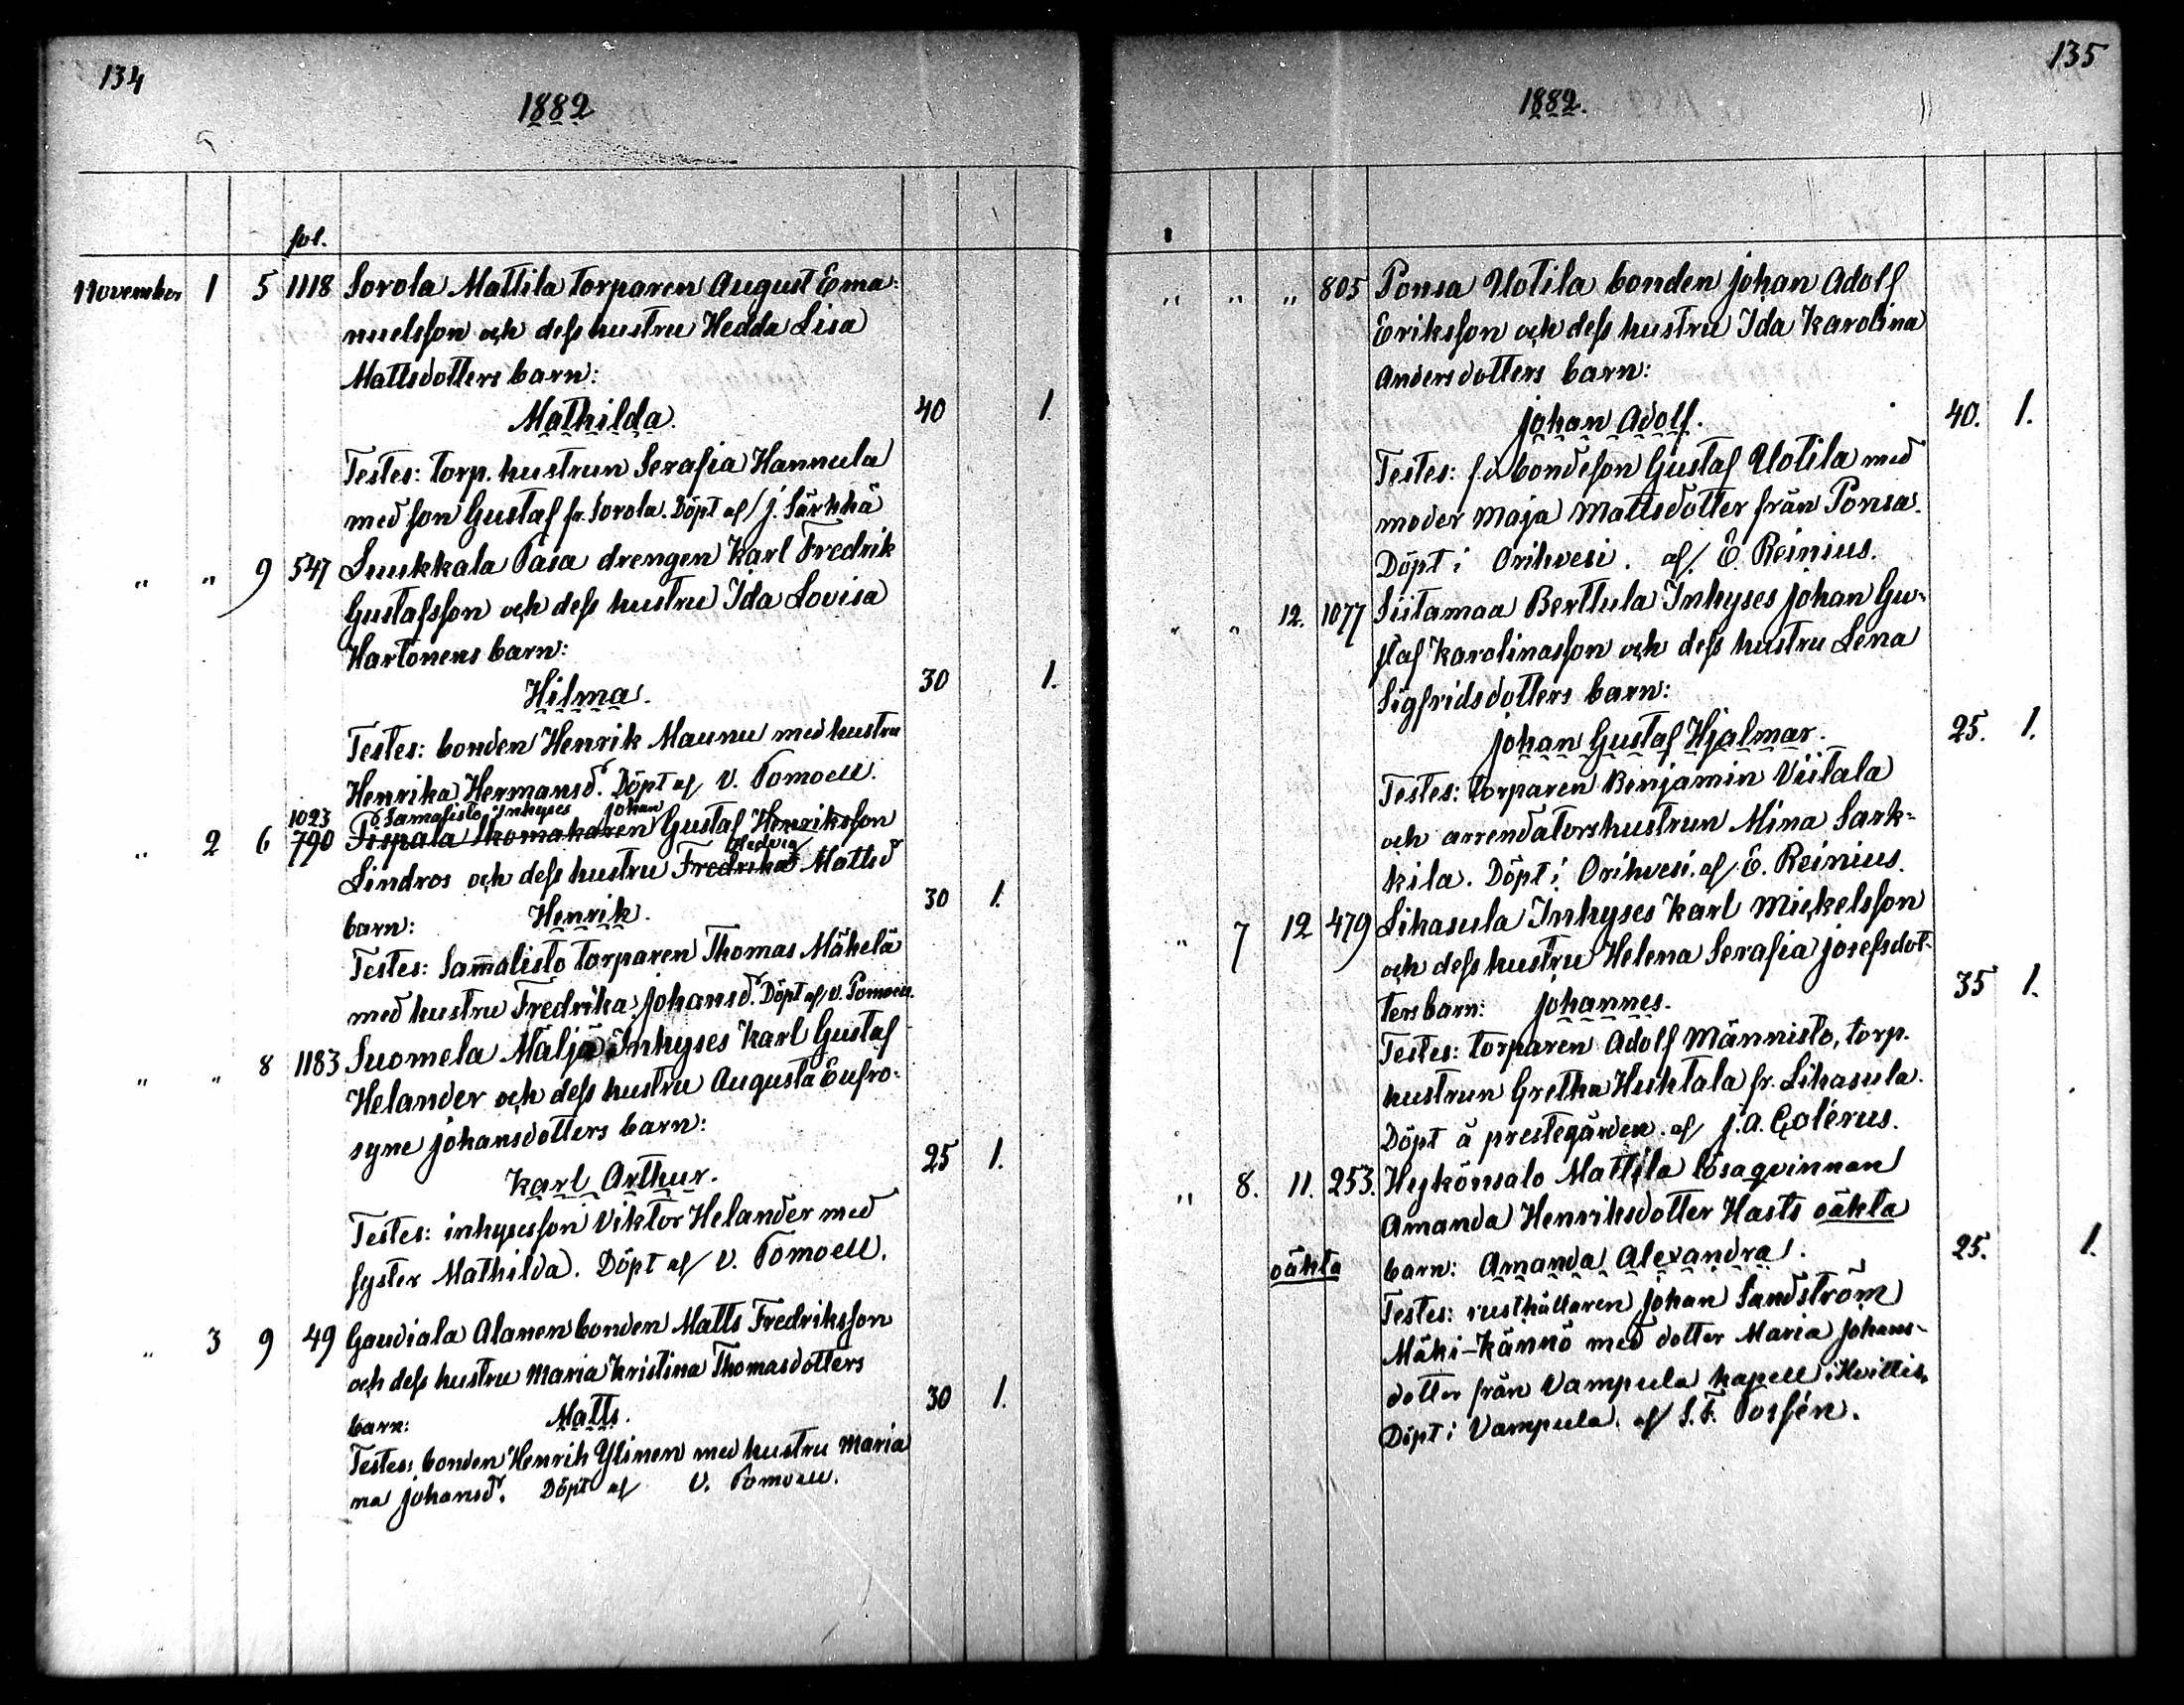 134
1882
fol.
November 1 5 1118 Sorola Mattila torparen August Ema-
nuelsson och dess hustru Hedda Lisa
Mattsdotters barn:
Mathilda. 40 1.
Testes: torp. hustrun Serafia Hannula
med son Gustaf fr. Sorola. Döpt af J. Särkkä
" " 9 547 Luukkala Pasa drengen Karl Fredrik
Gustafsson och dess hustru Ida Lovisa
Hartonens barn:
Hilma. 30 1.
Testes: bonden Henrik Maunu med hustru
Henrika Hermansd. Döpt af V. Pomoell.
1023 Samalisto Inhyses Johan
" 2 6 790 Tispala skomakaren Gustaf Henriksson
Hedvig
Lindros och dess hustru Fredrika Mattsd
barn: Henrik. 30 1.
Testes: Sam̄alisto torparen Thomas Mäkelä
med hustru Fredrika Johansd. Döpt af V. Pomoell.
" " 8 1183 Suomela Mäljä Inhyses Karl Gustaf
Helander och dess hustru Augusta Eufro-
syne Johansdotters barn:
Karl Arthur. 25 1.
Testes: inhysesson Viktor Helander med
syster Mathilda. Döpt af V. Pomoell.
" 3 9 49 Gaudiala Alanen bonden Matts Fredriksson
och dess hustru Maria Kristina Thomasdotters
barn: Matts. 30 1.
Testes: bonden Henrik Ylinen med hustru Maria
na Johansd. Döpt af V. Pomoell.
135
1882.
" " " 805 Ponsa Uotila bonden Johan Adolf
Eriksson och dess hustru Ida Karolina
Andersdotters barn:
Johan Adolf. 40. 1.
Testes: f.d. bondeson Gustaf Uotila med
moder Maja Mattsdotter från Ponsa.
Döpt i Orihvesi. af E. Reinius.
" " 12. 1077 Siitamaa Berttula Inhyses Johan Gu-
staf Karolinasson och dess hustru Lena
Sigfridsdotters barn:
Johan Gustaf Hjalmar. 25. 1.
Testes: torparen Benjamin Viitala
och arrendatorshustrun Mina Sark-
kila. Döpt i Orihvesi. af E. Reinius.
" 7 12 479 Lihasula Inhyses Karl Mickelsson
och dess hustru Helena Serafia Josefsdot-
ters barn: Johannes. 35 1.
Testes: torparen Adolf Männistö, torp.
hustrun Gretha Huhtala fr. Lihasula.
Döpt å prestegården. af J. A. Cotérus.
" 8. 11. 253. Heykönsalo Mattila lösaqvinnan
Amanda Henriksdotter Hasts oäkta
oäkta barn: Amanda Alexandra. 25. 1.
Testes: rusthållaren Johan Sandström
Mäki-Kännö med dotter Maria Johans-
dotter från Vampula kapell i Hvittis.
Döpt i Vampula. af S. F. Forsén.